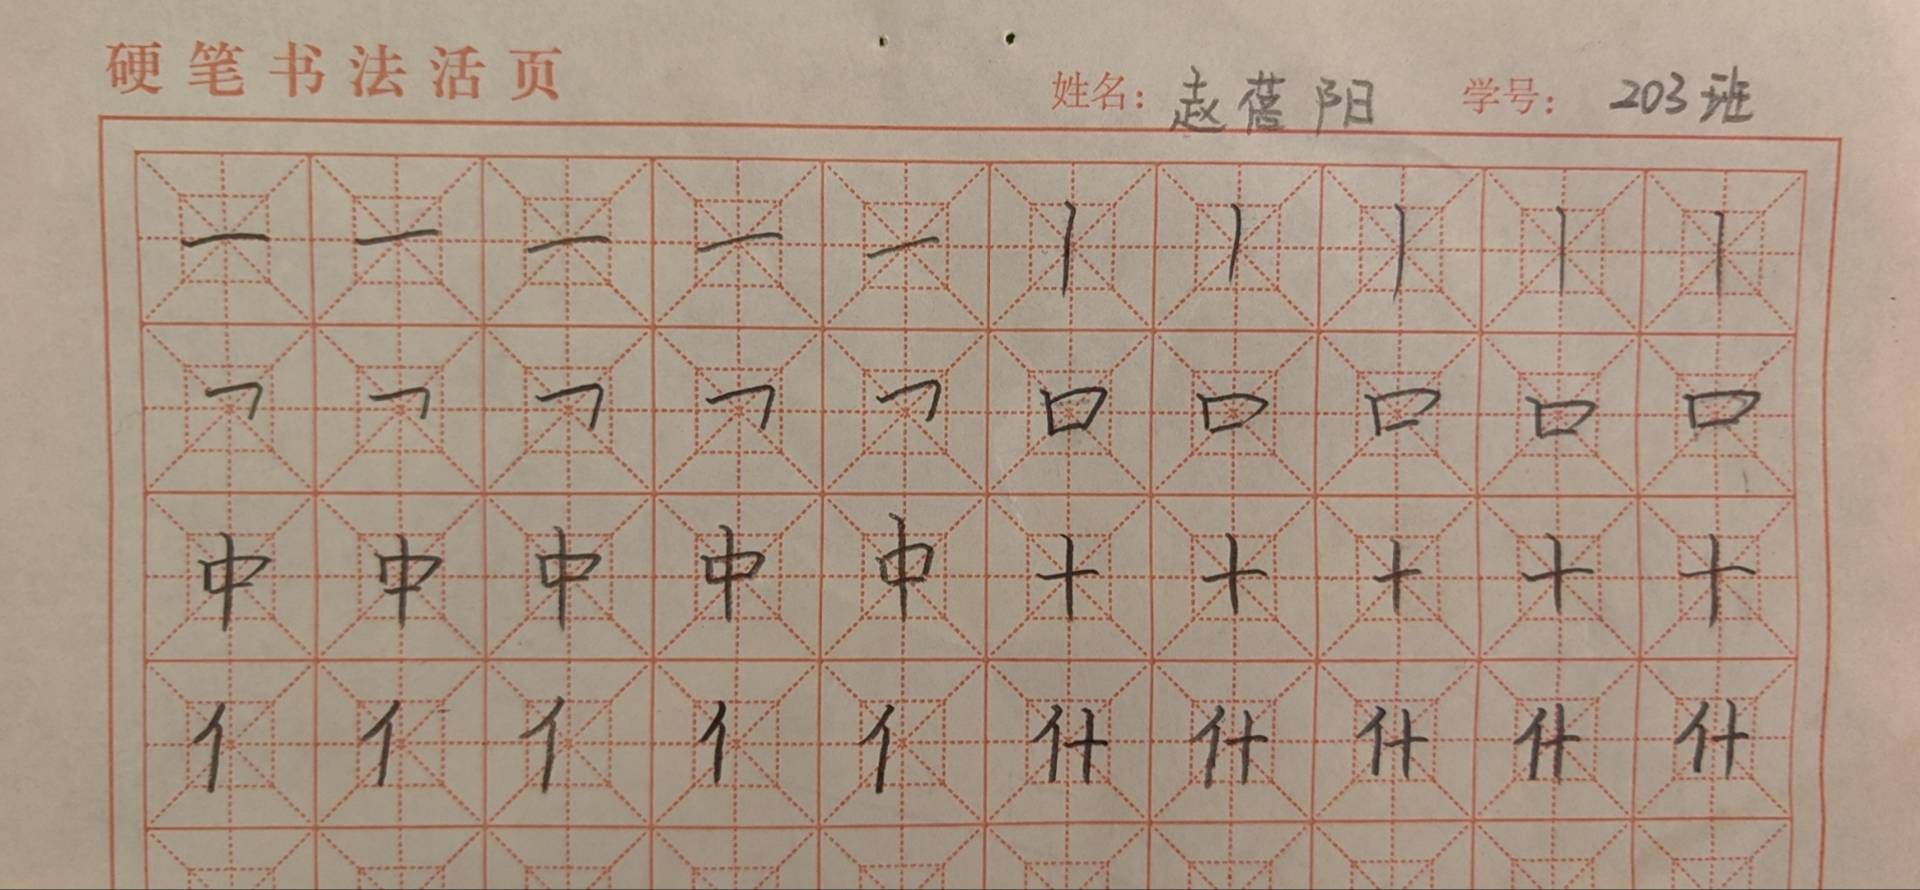 硬笔书法活页 姓名：赵蓓阳 学号：203班
一 一 一 一 一 丨 丨 丨 丨 丨
𠃍 𠃍 𠃍 𠃍 𠃍 口 口 口 口 口
中 中 中 中 中 十 十 十 十 十
亻 亻 亻 亻 亻 什 什 什 什 什